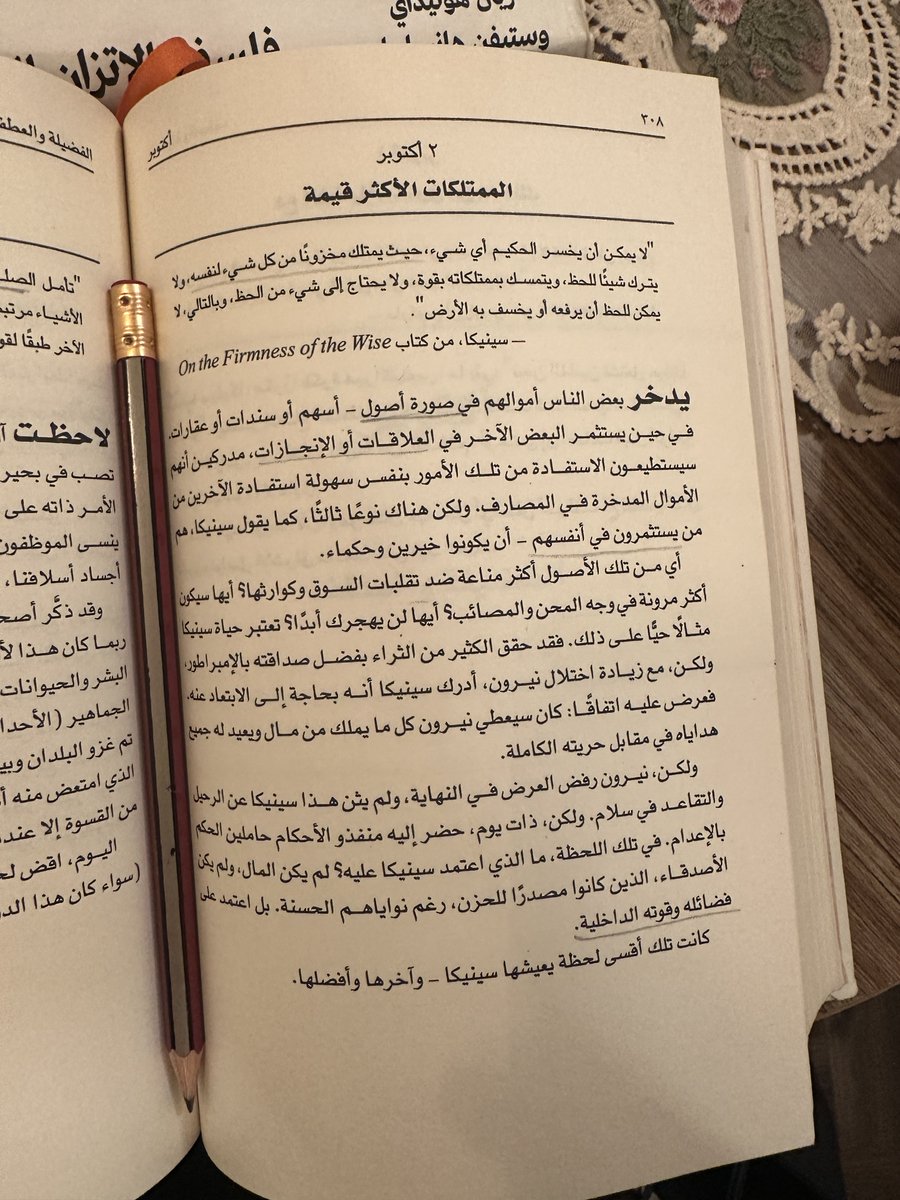 ريان هوليداي
وستيفن هانسلمان
فلسفة الاتزان
٣٠٨
أكتوبر
٢ أكتوبر
الممتلكات الأكثر قيمة
"لا يمكن أن يخسر الحكيم أي شيء، حيث يمتلك مخزونًا من كل شيء لنفسه، ولا
يترك شيئًا للحظ، ويتمسك بممتلكاته بقوة، ولا يحتاج إلى شيء من الحظ، وبالتالي، لا
يمكن للحظ أن يرفعه أو يخسف به الأرض".
– سينيكا، من كتاب On the Firmness of the Wise
يدخر بعض الناس أموالهم في صورة أصول – أسهم أو سندات أو عقارات.
في حين يستثمر البعض الآخر في العلاقات أو الإنجازات، مدركين أنهم
سيستطيعون الاستفادة من تلك الأمور بنفس سهولة استفادة الآخرين من
الأموال المدخرة في المصارف. ولكن هناك نوعًا ثالثًا، كما يقول سينيكا، هم
من يستثمرون في أنفسهم – أن يكونوا خيرين وحكماء.
أي من تلك الأصول أكثر مناعة ضد تقلبات السوق وكوارثها؟ أيها سيكون
أكثر مرونة في وجه المحن والمصائب؟ أيها لن يهجرك أبدًا؟ تعتبر حياة سينيكا
مثالًا حيًّا على ذلك. فقد حقق الكثير من الثراء بفضل صداقته بالإمبراطور،
ولكن، مع زيادة اختلال نيرون، أدرك سينيكا أنه بحاجة إلى الابتعاد عنه.
فعرض عليه اتفاقًا: كان سيعطي نيرون كل ما يملك من مال ويعيد له جميع
هداياه في مقابل حريته الكاملة.
ولكن، نيرون رفض العرض في النهاية، ولم يثن هذا سينيكا عن الرحيل
والتقاعد في سلام. ولكن، ذات يوم، حضر إليه منفذو الأحكام حاملين الحكم
بالإعدام. في تلك اللحظة، ما الذي اعتمد سينيكا عليه؟ لم يكن المال، ولم يكن
الأصدقاء، الذين كانوا مصدرًا للحزن، رغم نواياهم الحسنة. بل اعتمد على
فضائله وقوته الداخلية.
كانت تلك أقسى لحظة يعيشها سينيكا – وآخرها وأفضلها.
الفضيلة والعطف
"تأمل الصلة
الأشياء مرتب
الآخر طبقًا لقو
لاحظت
تصب في بحير
الأمر ذاته على
ينسى الموظفون
أجساد أسلافنا،
وقد ذكَّر أصح
ربما كان هذا لأ
البشر والحيوانات
الجماهير (الأحدا
تم غزو البلدان وبي
الذي امتعض منه أ
من القسوة إلا عند
اليوم، اقض لح
(سواء كان هذا الد